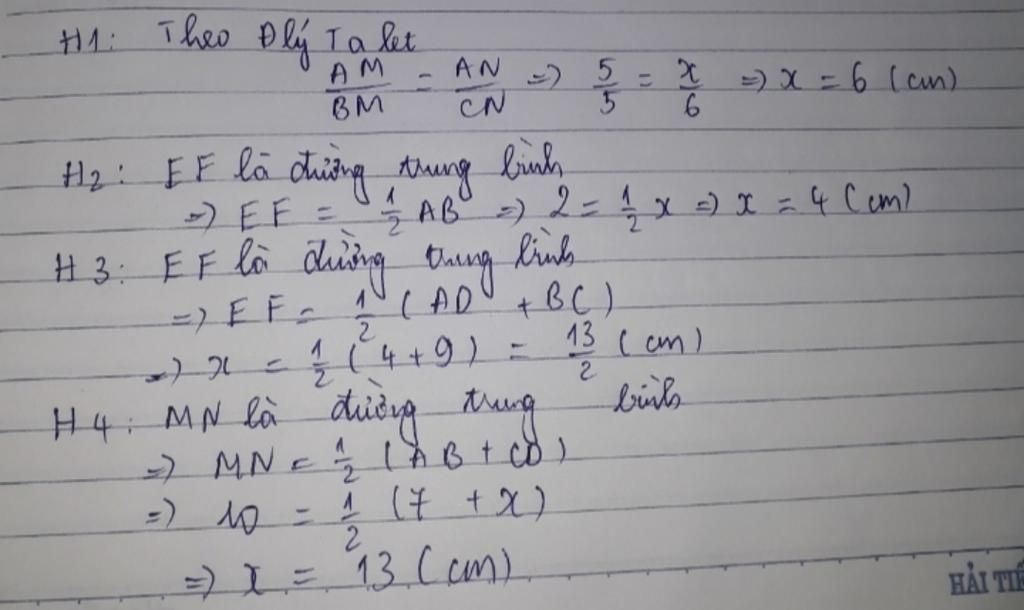 H1: Theo Đlý Ta let
AM/BM = AN/CN => 5/5 = x/6 => x = 6 (cm)
H2: EF là đường trung bình
=> EF = 1/2 AB => 2 = 1/2 x => x = 4 (cm)
H3: EF là đường trung bình
=> EF = 1/2 (AD + BC)
=> x = 1/2 (4+9) = 13/2 (cm)
H4: MN là đường trung bình
=> MN = 1/2 (AB + CD)
=> 10 = 1/2 (7 + x)
=> x = 13 (cm)
HẢI TIẾ